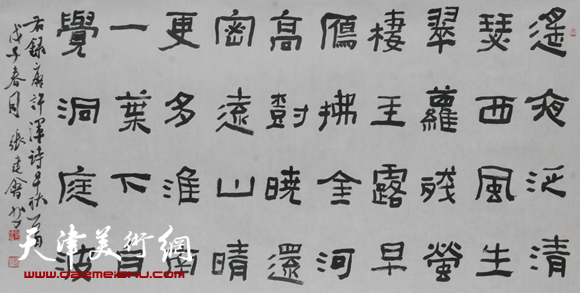 遙夜泛清
瑟西風生
翠蘿殘螢
棲玉露早
鴈拂金河
高樹曉還
密遠山晴
更多淮南
一葉下自
覺洞庭波
右錄唐許渾詩早秋一首
戊子春月張建會書
天津美術網
www.022meishu.com